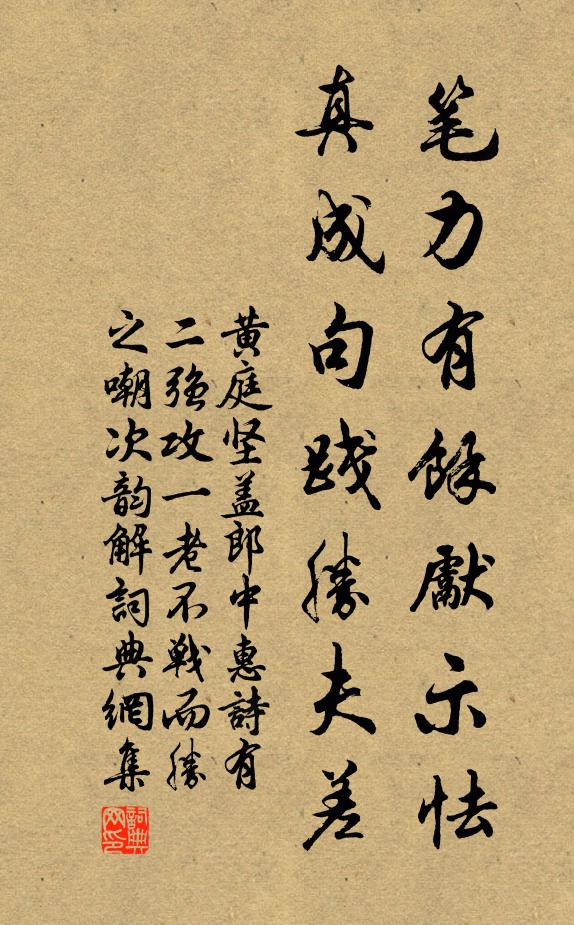 笔力有餘獻示怯
真成句踐勝夫差
黄庭坚盖郎中惠詩有
二强攻一老不戦而勝
之嘲次韵解詞典網集
詞典
网印